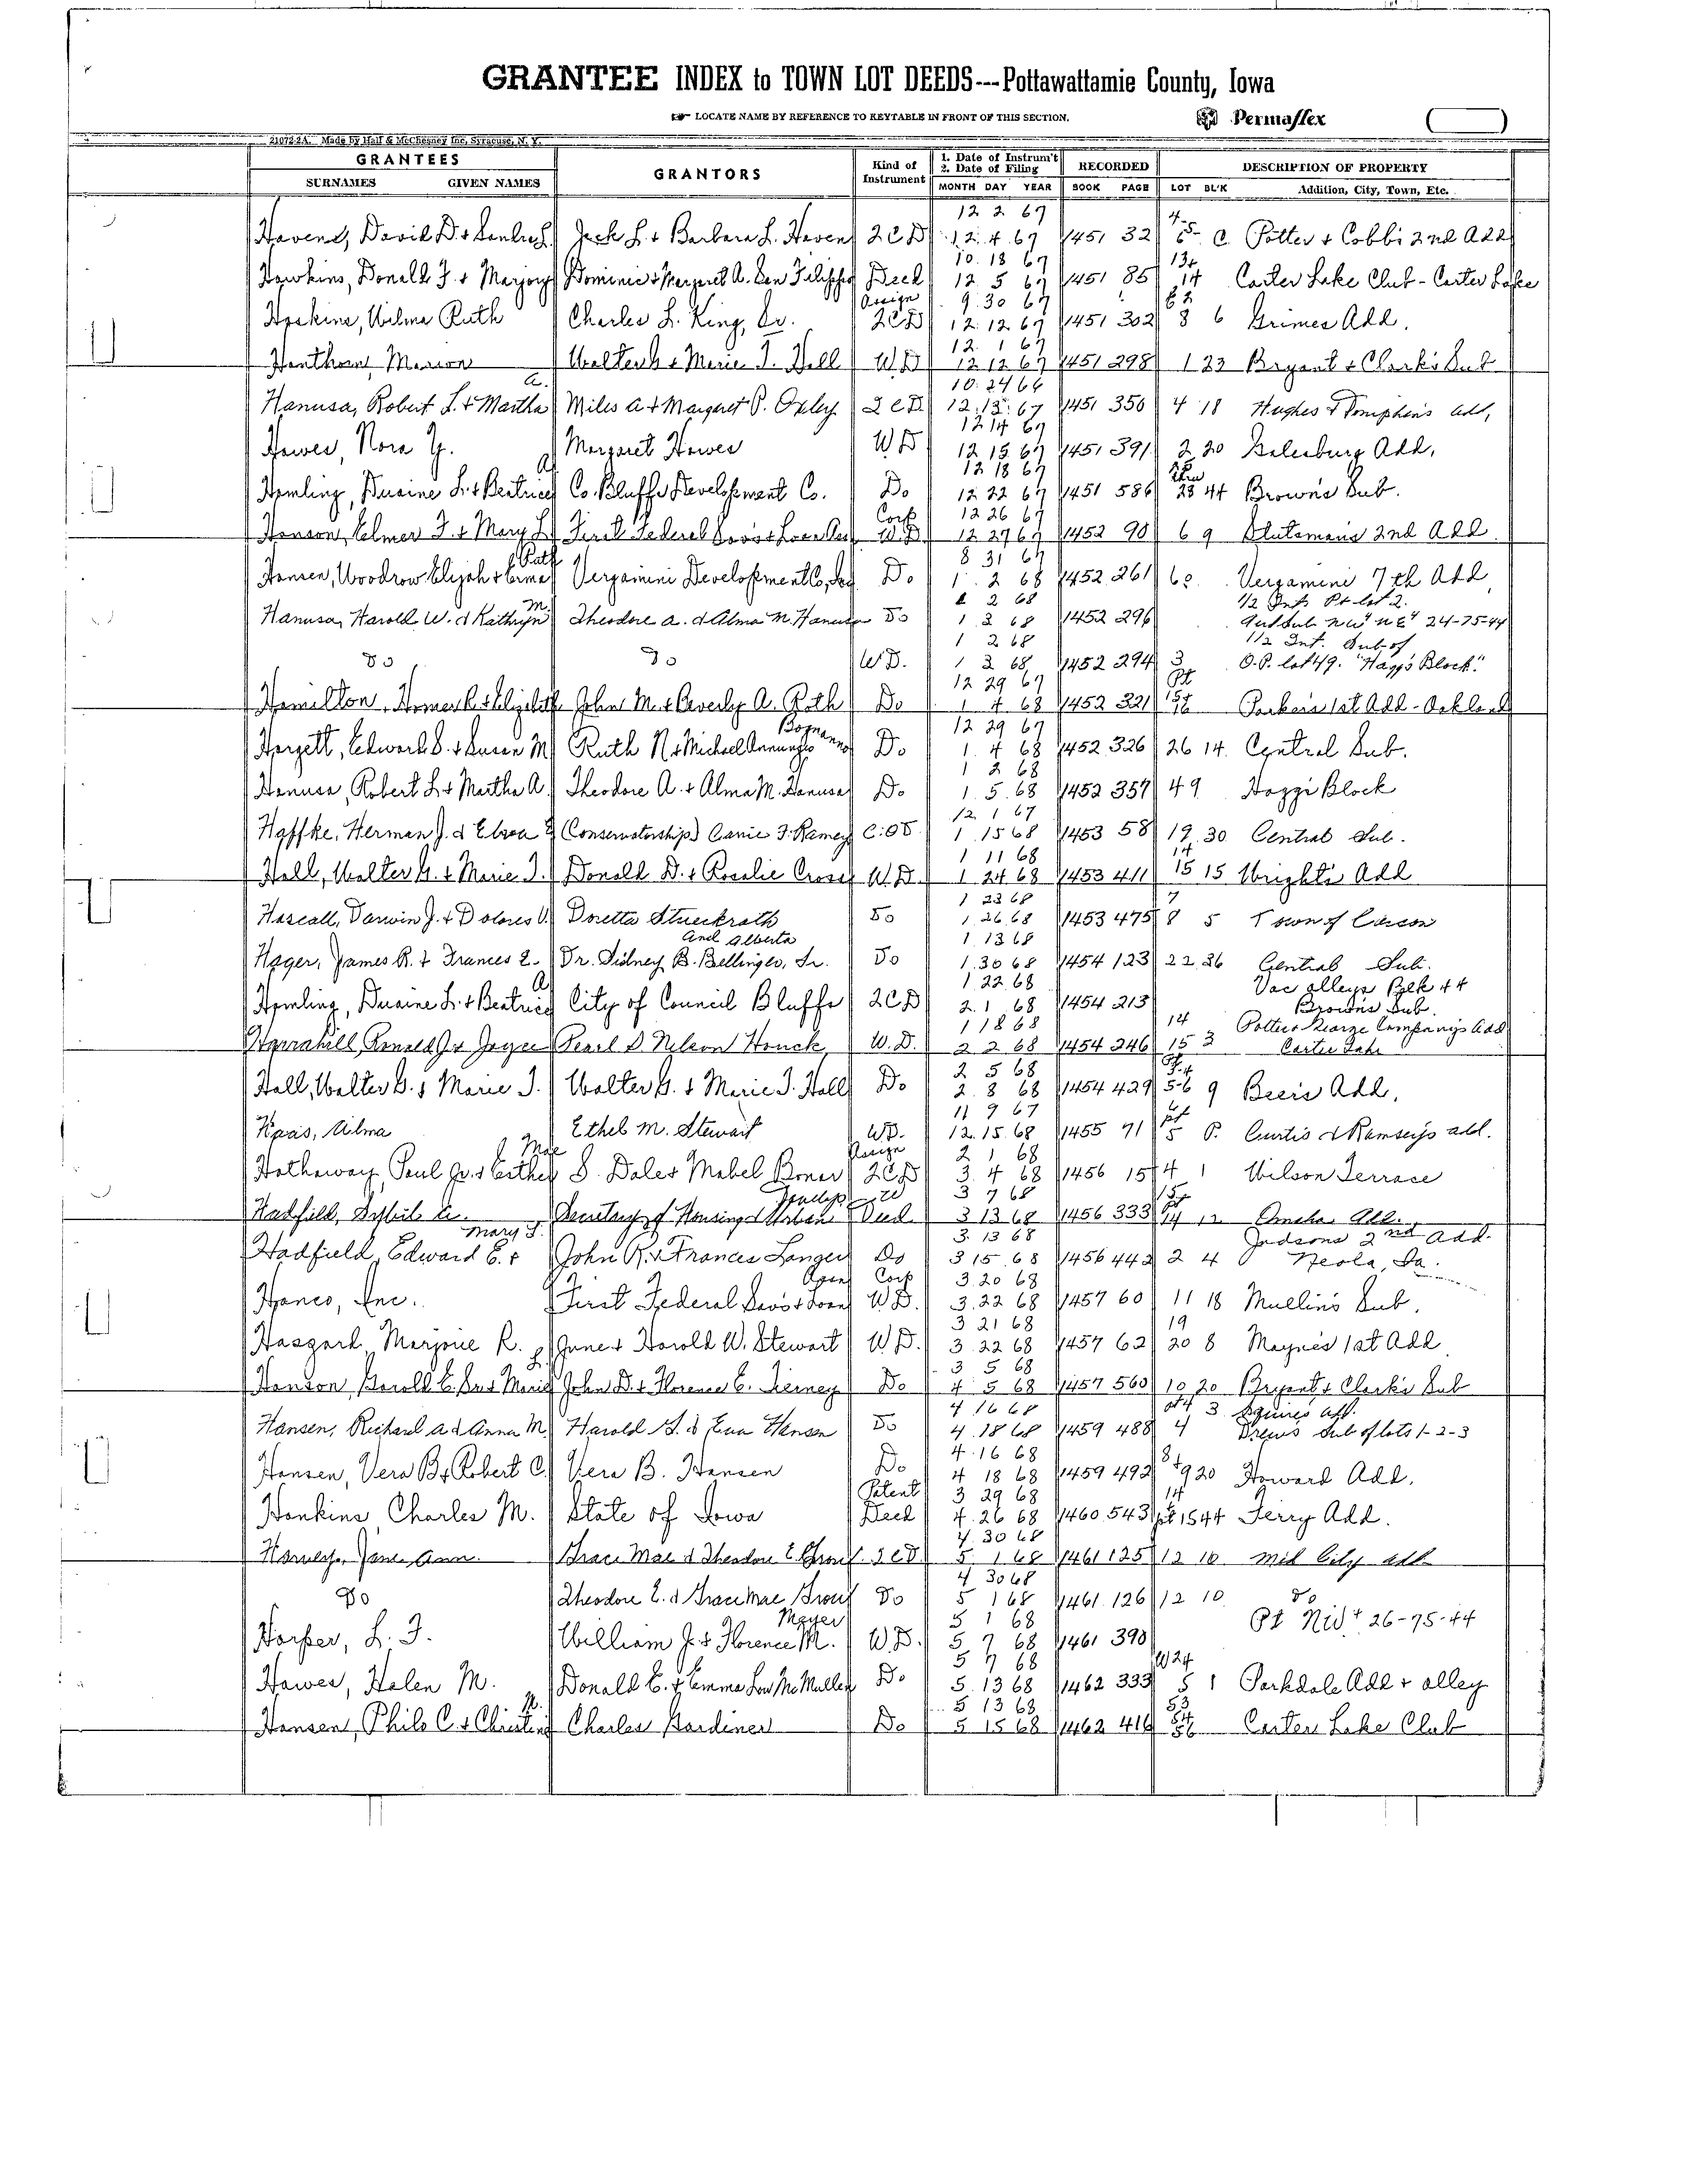 GRANTEE INDEX to TOWN LOT DEEDS---Pottawattamie County, Iowa
LOCATE NAME BY REFERENCE TO KEYTABLE IN FRONT OF THIS SECTION.
Permaflex
21072-2A Made by Hall & McChesney Inc. Syracuse, N. Y.
GRANTEES GRANTORS Kind of Instrument 1. Date of Instrum't 2. Date of Filing RECORDED DESCRIPTION OF PROPERTY
SURNAMES GIVEN NAMES MONTH DAY YEAR BOOK PAGE LOT BL'K Addition, City, Town, Etc.
12 2 67 4
Havens, David D. + Jack L. + Barbara L. Havens 2CD 12 4 67 1451 32 5 C. Potter + Cobbs 2nd Add
10 18 67 13
Hawkins, Donald J. + Marjory Dominic + Margaret A. Deed 12 5 67 1451 85 14 Carter Lake Club - Carter Lake
Assign 9 30 67
Wilma Ruth Charles L. King, Sr. 2CD 12 12 67 1451 302 8 6 Grimes Add.
12 1 67
Hanthorn, Marion Walter + Marie J. Hall WD 12 12 67 1451 298 1 23 Bryant + Clark's Sub
A. 10 24 66
Hanusa, Robert L. + Martha Miles A + Margaret P. Oxley 2CD 12 13 67 1451 350 4 18 Hughes + Tompkins add,
12 14 67
Hawes, Nora Y. Margaret Hawes WD 12 15 67 1451 391 2 20 Add.
A 12 18 67 thru
Hamling, Duaine L. + Beatrice Co. Bluffs Development Co. Do 12 22 67 1451 586 23 44 Brown's Sub.
Corp 12 26 67
Hanson, Elmer J. + Mary L. First Federal Sav's + Loan W.D. 12 27 67 1452 90 6 9 Stutsman's 2nd Add
Ruth 8 31 67
Hansen, Woodrow Elijah + Erma Vergamini Development Co., Do 1 2 68 1452 261 Vergamini 7th Add
M. 1 2 68 1/2 Int. Pt lot 2.
Hanusa, Harold W. & Kathryn Theodore A. & Alma M. Hanusa Do 1 2 68 1452 296 Aud Sub NW4 NE4 24-75-44
1 2 68 1/2 Int. Sub of
Do Do W.D. 1 2 68 1452 294 3 O.P. lot 49. "Hagg's Block."
12 29 67 Pt
Hamilton, Homer John M. + Beverly A. Roth Do 1 4 68 1452 321 Parker's 1st Add - Oakland
12 29 67
Hargett, Edward S. + Susan M. Ruth N. + Michael Do 1 4 68 1452 326 26 14 Central Sub.
1 2 68
Hanusa, Robert L. + Martha A. Theodore A. + Alma M. Hanusa Do 1 5 68 1452 357 49 Hagg's Block
12 1 67
Haffke, Herman J. & Elsea (Conservatorship) J. Ramey C.O.D. 1 15 68 1453 58 19 30 Central Sub.
1 11 68 14
Hall, Walter G. + Marie J. Donald D. + Rosalie Cross W.D. 1 24 68 1453 411 15 15 Wright's Add
1 23 68 7
Hascall, Darwin J. + Dolores V. Doretta Stueckrath Do 1 26 68 1453 475 8 5 Town of Carson
and Alberta 1 13 68
Hager, James R. + Frances E. Dr. Sidney B. Bellinger, Sr. Do 1 30 68 1454 123 22 36 Central Sub.
A 1 22 68 Vac alleys Blk 44
Hamling, Duaine L. + Beatrice City of Council Bluffs 2CD 2 1 68 1454 213 Brown's Sub
1 18 68 14 Potter + Company's Add
Ronald J. + Joyce Pearl & Nelson Houck W.D. 2 2 68 1454 246 15 3 Carter Lake
2 5 68
Hall, Walter G. + Marie J. Walter G. + Marie J. Hall Do 2 8 68 1454 429 5-6 9 Beers Add.
11 9 67 pt
Haas, Alma Ethel M. Stewart WD. 12 15 68 1455 91 5 P. Curtis & Ramsey's add.
Mae Assign 2 1 68
Hathaway, Paul Jr. + Esther S. Dale + Mabel Boner 2CD 3 4 68 1456 15 4 1 Wilson Terrace
3 7 68
Hadfield, Secretary of Housing & Urban Deed 3 13 68 1456 333 12 Omaha Add.
Mary J. 3 13 68 Judsons 2nd add.
Hadfield, Edward E. + John R. + Frances Langer Do 3 15 68 1456 442 2 4 Neola, Ia.
Corp 3 20 68
Hanco, Inc. First Federal Sav's + Loan WD. 3 22 68 1457 60 11 18 Mullin's Sub.
3 21 68 19
Hasgard, Marjorie R. June + Harold W. Stewart WD. 3 22 68 1457 62 20 8 Mayne's 1st Add
3 5 68
Hanson, Harold E. + Marie John D. + Florence C. Tierney Do 4 5 68 1457 560 19 20 Bryant + Clark's Sub
4 16 68 3 Squires add.
Hansen, Richard A & Anna M. Harold S. & Eva Hansen Do 4 18 68 1459 488 4 Sub of lots 1-2-3
4 16 68
Hansen, Vera B. + Robert C. Vera B. Hansen Do 4 18 68 1459 492 920 Howard Add.
Patent 3 29 68 14
Hankins, Charles M. State of Iowa Deed 4 26 68 1460 543 1544 Ferry Add.
4 30 68
Jane Ann Grace Mae & Theodore E. 2CD 5 1 68 1461 125 12 10 Mid City add
4 30 68
Do Theodore E. & Grace Mae Do 5 1 68 1461 126 12 10 Do
Meyer 5 1 68 Pt NW4 26-75-44
Harper, L. J. William J. + Florence M. W.D. 5 7 68 1461 390
5 7 68 W24
Hawes, Helen M. Donald E. + Emma Lou McMullen Do 5 13 68 1462 333 5 1 Parkdale Add + alley
5 13 68 53
Hansen, Philo C. + Charles Gardiner Do 5 15 68 1462 416 Carter Lake Club